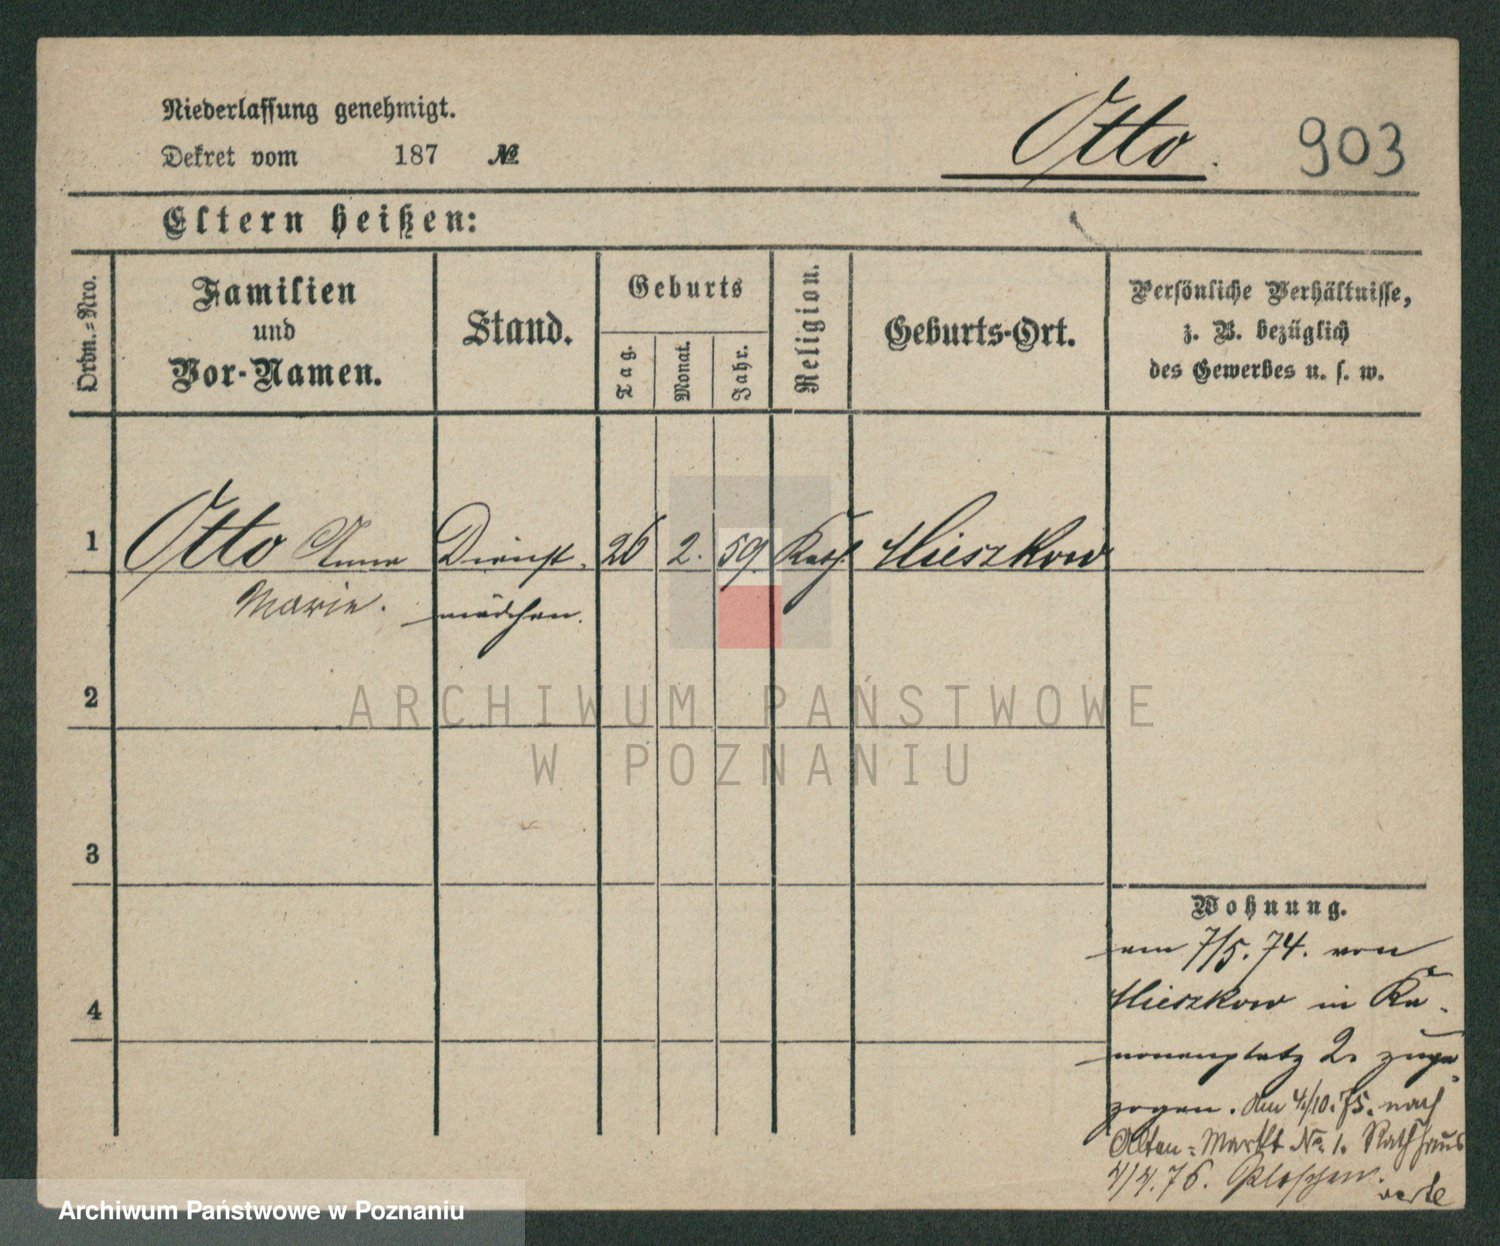 Niederlassung genehmigt.
Dekret vom 187 №
Otto.
903
Eltern heißen:
Ordn.-Nro.
Familien
und
Vor-Namen.
Stand.
Geburts
Tag.
Monat.
Jahr.
Religion.
Geburts-Ort.
Persönliche Verhältnisse,
z. B. bezüglich
des Gewerbes u. s. w.
1 Otto Anna Dienst- 26 2. 59. Kath. Mieszkow
Marie. mädchen.
2
3
4
Wohnung.
am 7/5. 74. von
Mieszkow in Ka-
nonenplatz 2. zuge-
zogen. Am 4/10. 75. nach
Alten-Markt № 1. Rathhaus
4/4. 76. Pleschen.
verte
ARCHIWUM PAŃSTWOWE
W POZNANIU
Archiwum Państwowe w Poznaniu